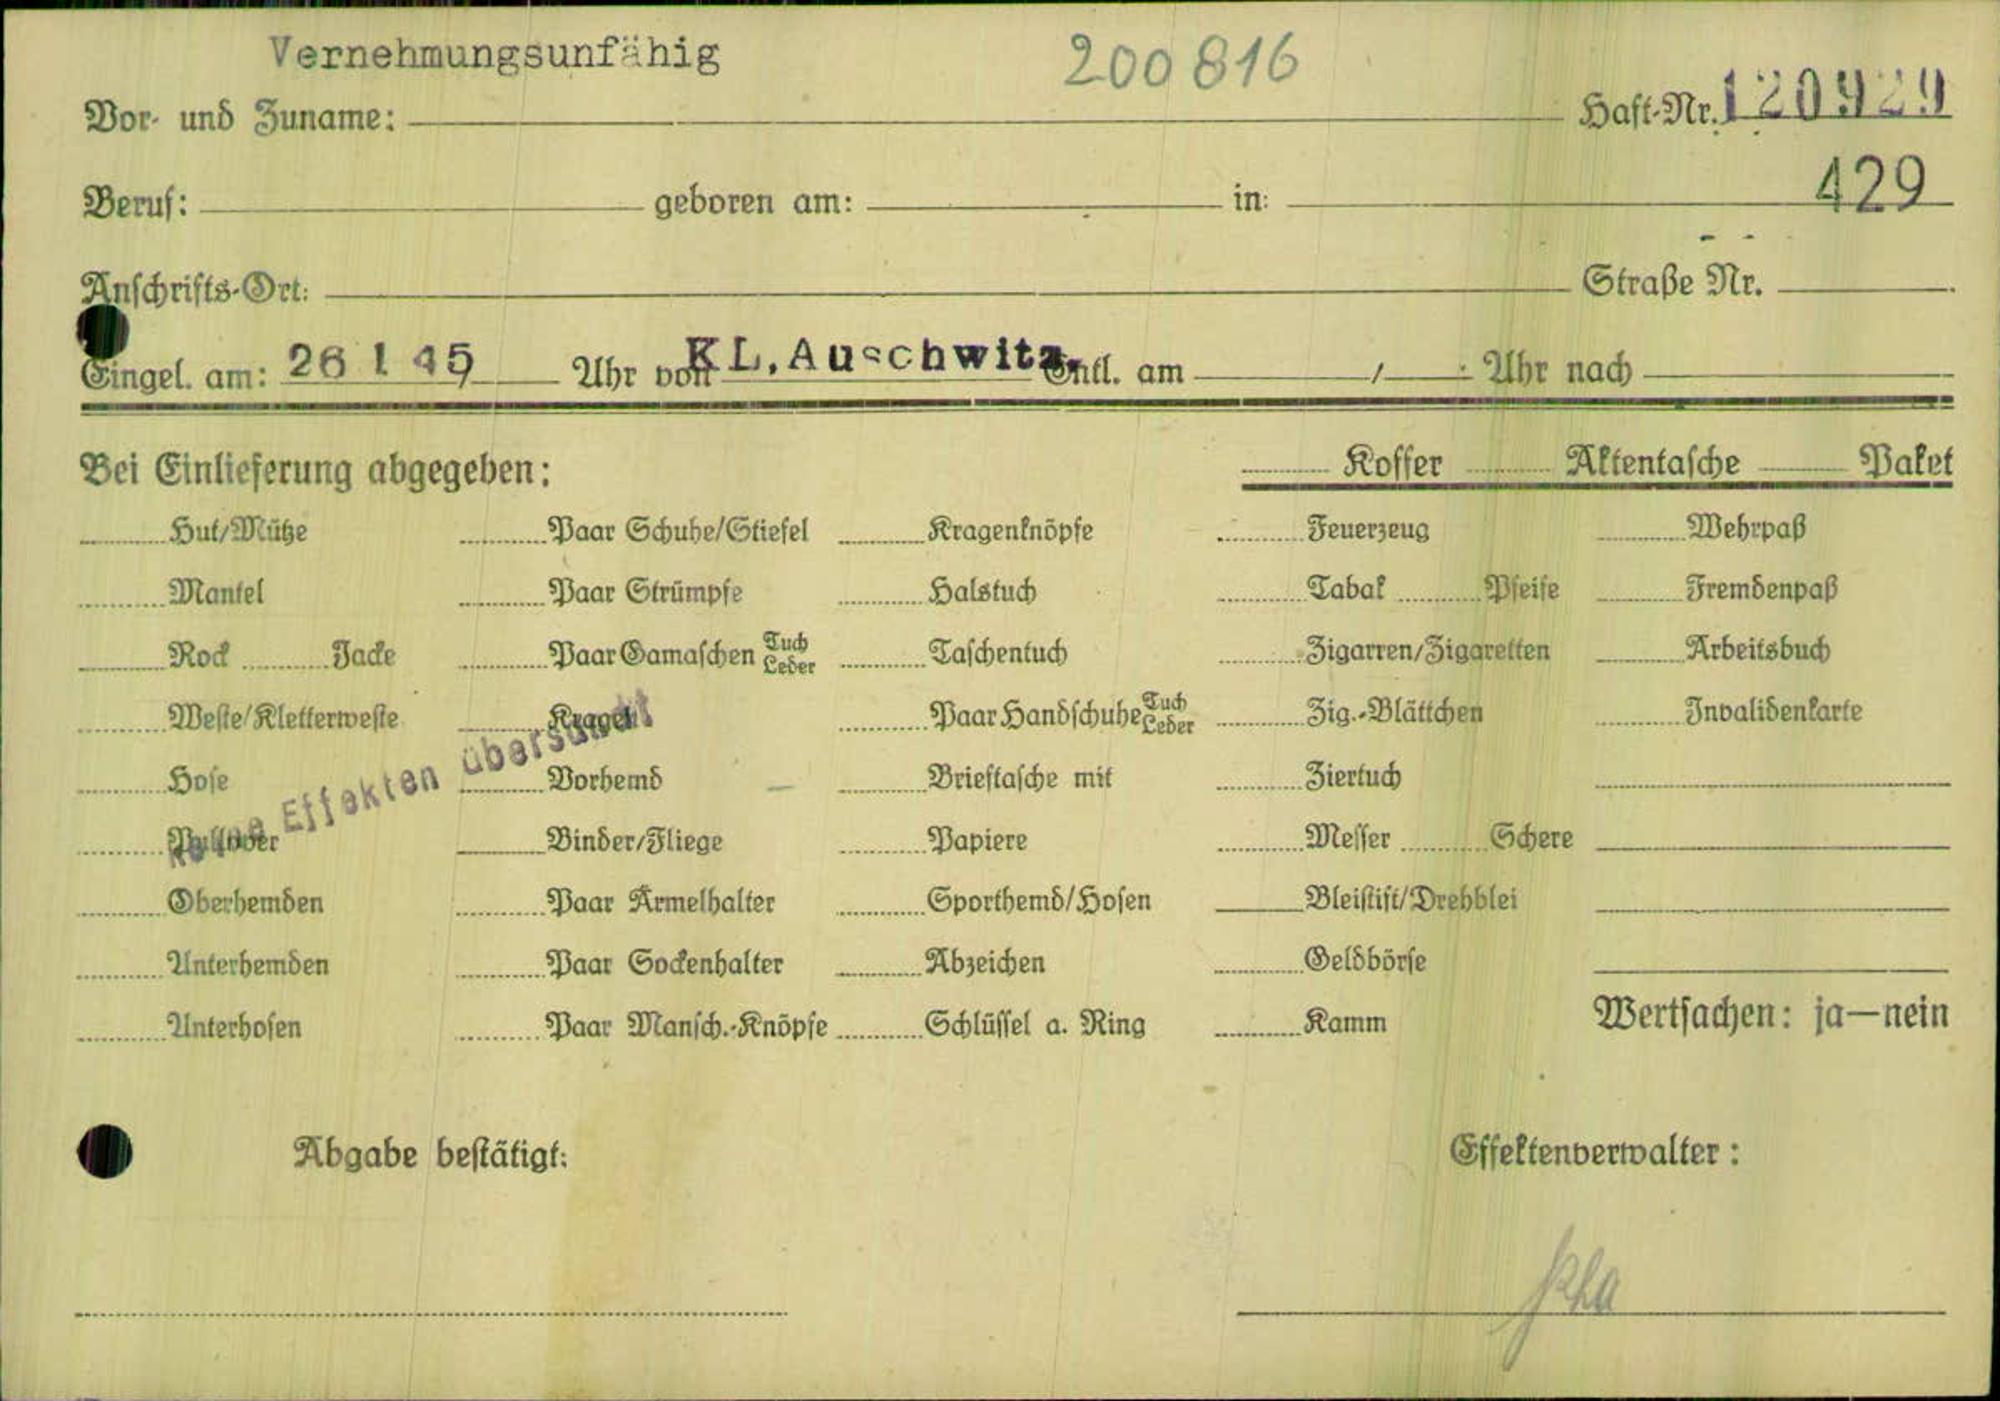 Vernehmungsunfähig
200816
Vor- und Zuname:
Haft-Nr. 120929
429
Beruf: geboren am: in:
Anschrifts-Ort: Straße Nr.
Eingel. am: 26 1 45 Uhr von KL. Auschwitz. Entl. am / Uhr nach
Bei Einlieferung abgegeben: Koffer Aktentasche Paket
Hut/Mütze Paar Schuhe/Stiefel Kragenknöpfe Feuerzeug Wehrpaß
Mantel Paar Strümpfe Halstuch Tabak Pfeife Fremdenpaß
Rock Jacke Paar Gamaschen Tuch Leder Taschentuch Zigarren/Zigaretten Arbeitsbuch
Weste/Kletterweste Kragen Paar Handschuhe Tuch Leder Zig.-Blättchen Invalidenkarte
Hose Vorhemd Brieftasche mit Ziertuch
Pullover Binder/Fliege Papiere Messer Schere
Keine Effekten übersandt
Oberhemden Paar Ärmelhalter Sporthemd/Hosen Bleistift/Drehblei
Unterhemden Paar Sockenhalter Abzeichen Geldbörse
Unterhosen Paar Mansch.-Knöpfe Schlüssel a. Ring Kamm Wertsachen: ja—nein
Abgabe bestätigt: Effektenverwalter: